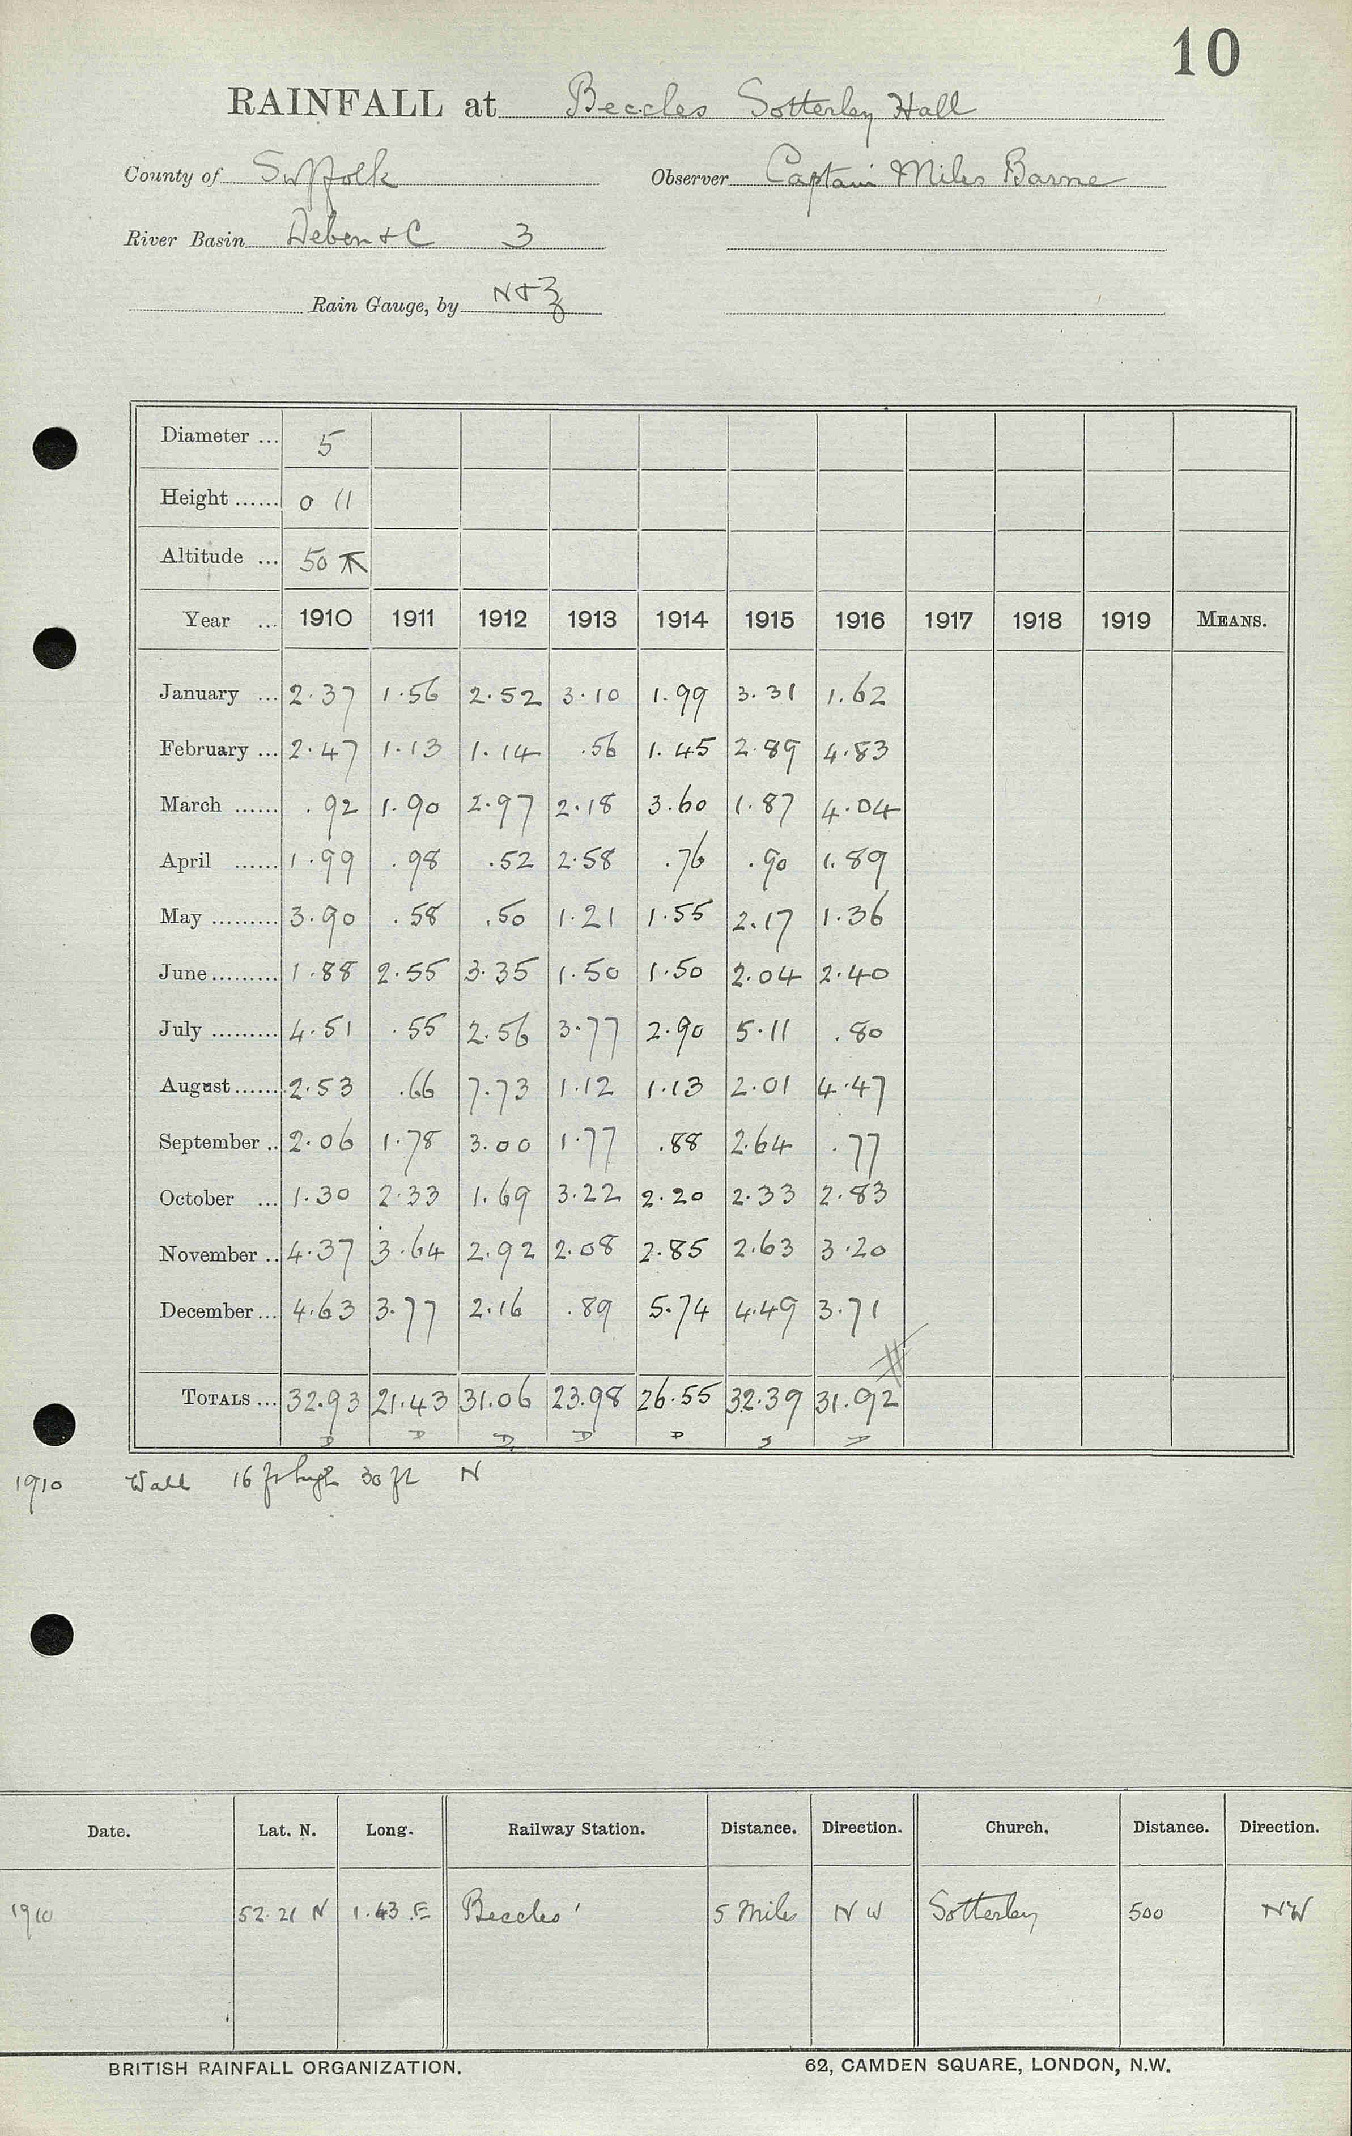 10
RAINFALL at Beccles Sotterley Hall
County of Suffolk Observer Captain Miles Barne
River Basin Deben & C 3
Rain Gauge, by N & Z
Diameter ... 5
Height ...... 0 11
Altitude ... 50
Year ... 1910 1911 1912 1913 1914 1915 1916 1917 1918 1919 MEANS.
January ... 2.37 1.56 2.52 3.10 1.99 3.31 1.62
February ... 2.47 1.13 1.14 .56 1.45 2.89 4.83
March ...... .92 1.90 2.97 2.18 3.60 1.87 4.04
April ...... 1.99 .98 .52 2.58 .76 .90 1.89
May ......... 3.90 .58 .50 1.21 1.55 2.17 1.36
June ......... 1.88 2.55 3.35 1.50 1.50 2.04 2.40
July ......... 4.51 .55 2.56 3.77 2.90 5.11 .80
August ...... 2.53 .66 7.73 1.12 1.13 2.01 4.47
September .. 2.06 1.78 3.00 1.77 .88 2.64 .77
October ... 1.30 2.33 1.69 3.22 2.20 2.33 2.83
November .. 4.37 3.64 2.92 2.08 2.85 2.63 3.20
December ... 4.63 3.77 2.16 .89 5.74 4.49 3.71
TOTALS ... 32.93 21.43 31.06 23.98 26.55 32.39 31.92
1910 Wall 16 ft high 30 ft N
Date. Lat. N. Long. Railway Station. Distance. Direction. Church. Distance. Direction.
1910 52.21 N 1.43 E Beccles 5 Miles NW Sotterley 500 NW
BRITISH RAINFALL ORGANIZATION. 62, CAMDEN SQUARE, LONDON, N.W.